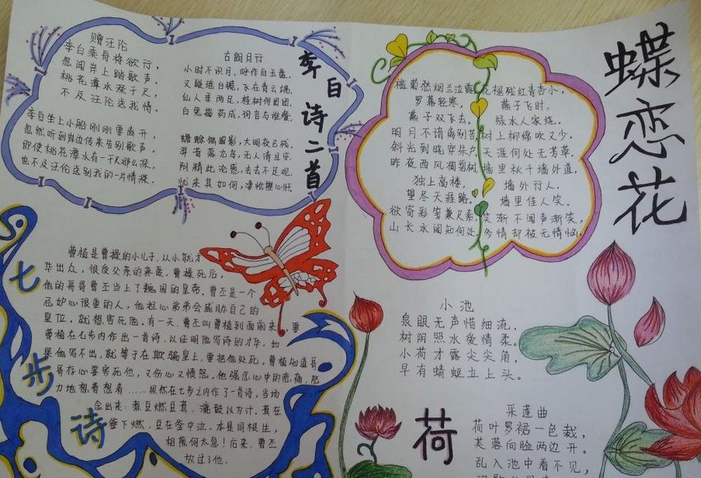 赠汪伦
李白乘舟将欲行,
忽闻岸上踏歌声。
桃花潭水深千尺,
不及汪伦送我情。
李白坐上小船刚刚要离开,
忽然听到岸边传来告别歌声。
即使桃花潭水有一千尺那么深,
也不及汪伦送别我的一片情深。
古朗月行
小时不识月,呼作白玉盘。
又疑瑶台镜,飞在青云端。
仙人垂两足,桂树何团团。
白兔捣药成,问言与谁餐。
蟾蜍蚀圆影,大明夜已残。
羿昔落九乌,天人清且安。
阴精此沦惑,去去不足观。
忧来其如何,凄怆摧心肝。
李白诗二首
蝶恋花
槛菊愁烟兰泣露
罗幕轻寒,
燕子双飞去。
明月不谙离别苦
斜光到晓穿朱户
昨夜西风凋碧树
独上高楼。
望尽天涯路。
欲寄彩笺兼尺素
山长水阔知何处
花褪残红青杏小,
燕子飞时,
绿水人家绕。
树上柳绵吹又少,
天涯何处无芳草。
墙里秋千墙外道,
墙外行人,
墙里佳人笑。
笑渐不闻声渐笑,
多情却被无情恼。
七步诗
曹植是曹操的小儿子,从小就才
华出众,很受父亲的亲爱。曹操死后,
他的哥哥曹丕当上了魏国的皇帝。曹丕是一个
忌妒心很重的人,他担心弟弟会威胁自己的
皇位,就想害死他。有一天,曹丕叫曹植到面前来,要
曹植在七步内作出一首诗,以证明他写诗的才华。如
果他写不出,就等于在欺骗皇上,要把他处死。曹植知道哥
哥存心要害死他,又伤心又愤怒。他强忍心中的悲痛,努
力地想着想着……现然在七步之内作了一首诗,当场
念出来:煮豆燃豆萁,漉豉以为汁。萁在
釜下燃,豆在釜中泣。本是同根生,
相煎何太急!后来,曹丕
放过了他。
小池
泉眼无声惜细流,
树阴照水爱情柔。
小荷才露尖尖角,
早有蜻蜓立上头。
荷
采莲曲
荷叶罗裙一色裁,
芙蓉向脸两边开。
乱入池中看不见,